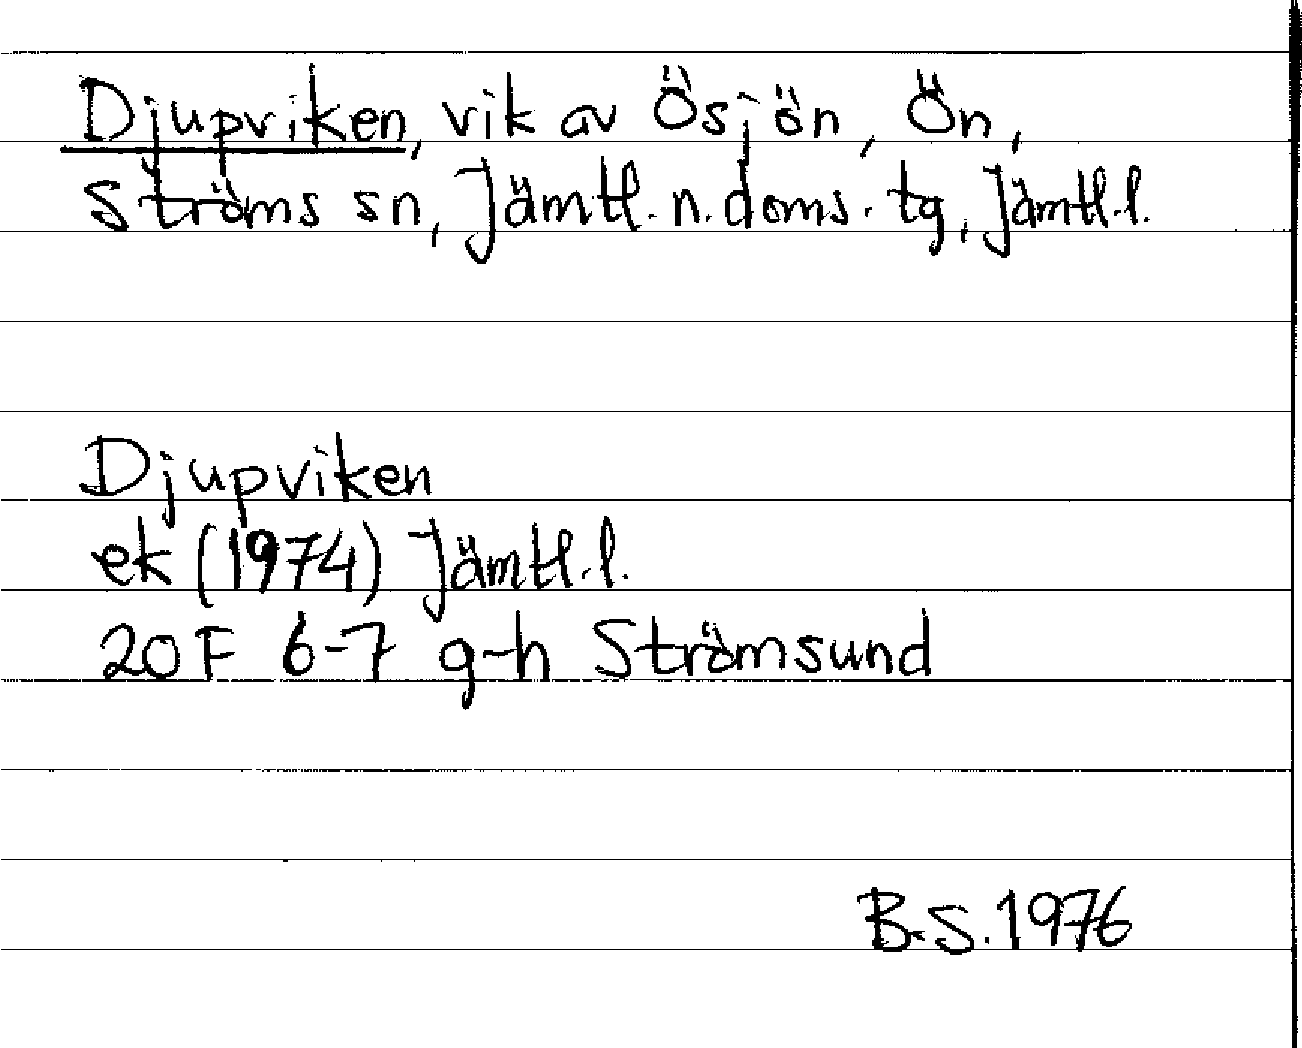 Djupviken, vik av Ösjön, Ön,
Ströms sn, Jämtl. n. doms. tg, Jämtl. l.
Djupviken
ek (1974) Jämtl. l.
20 F 6-7 g-h Strömsund
B.S. 1976